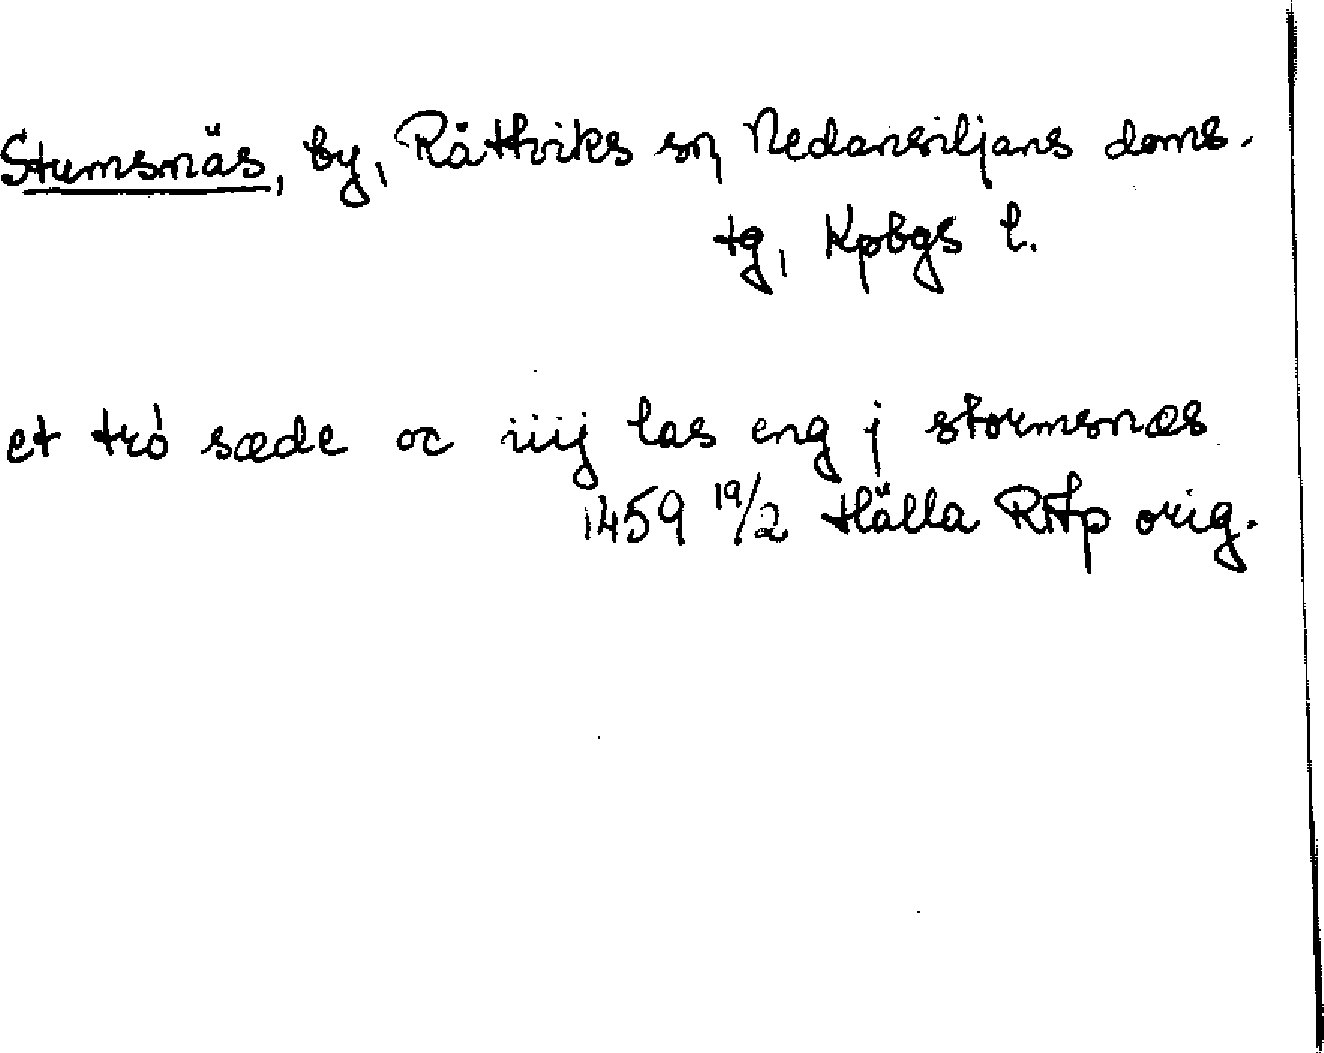 Stumsnäs, by, Rättviks sn, Nedansiljans doms.
tg, Kpbgs l.
et trö sæde oc iiij las eng j stormsnæs
1459 19/2 Hälla RAp orig.